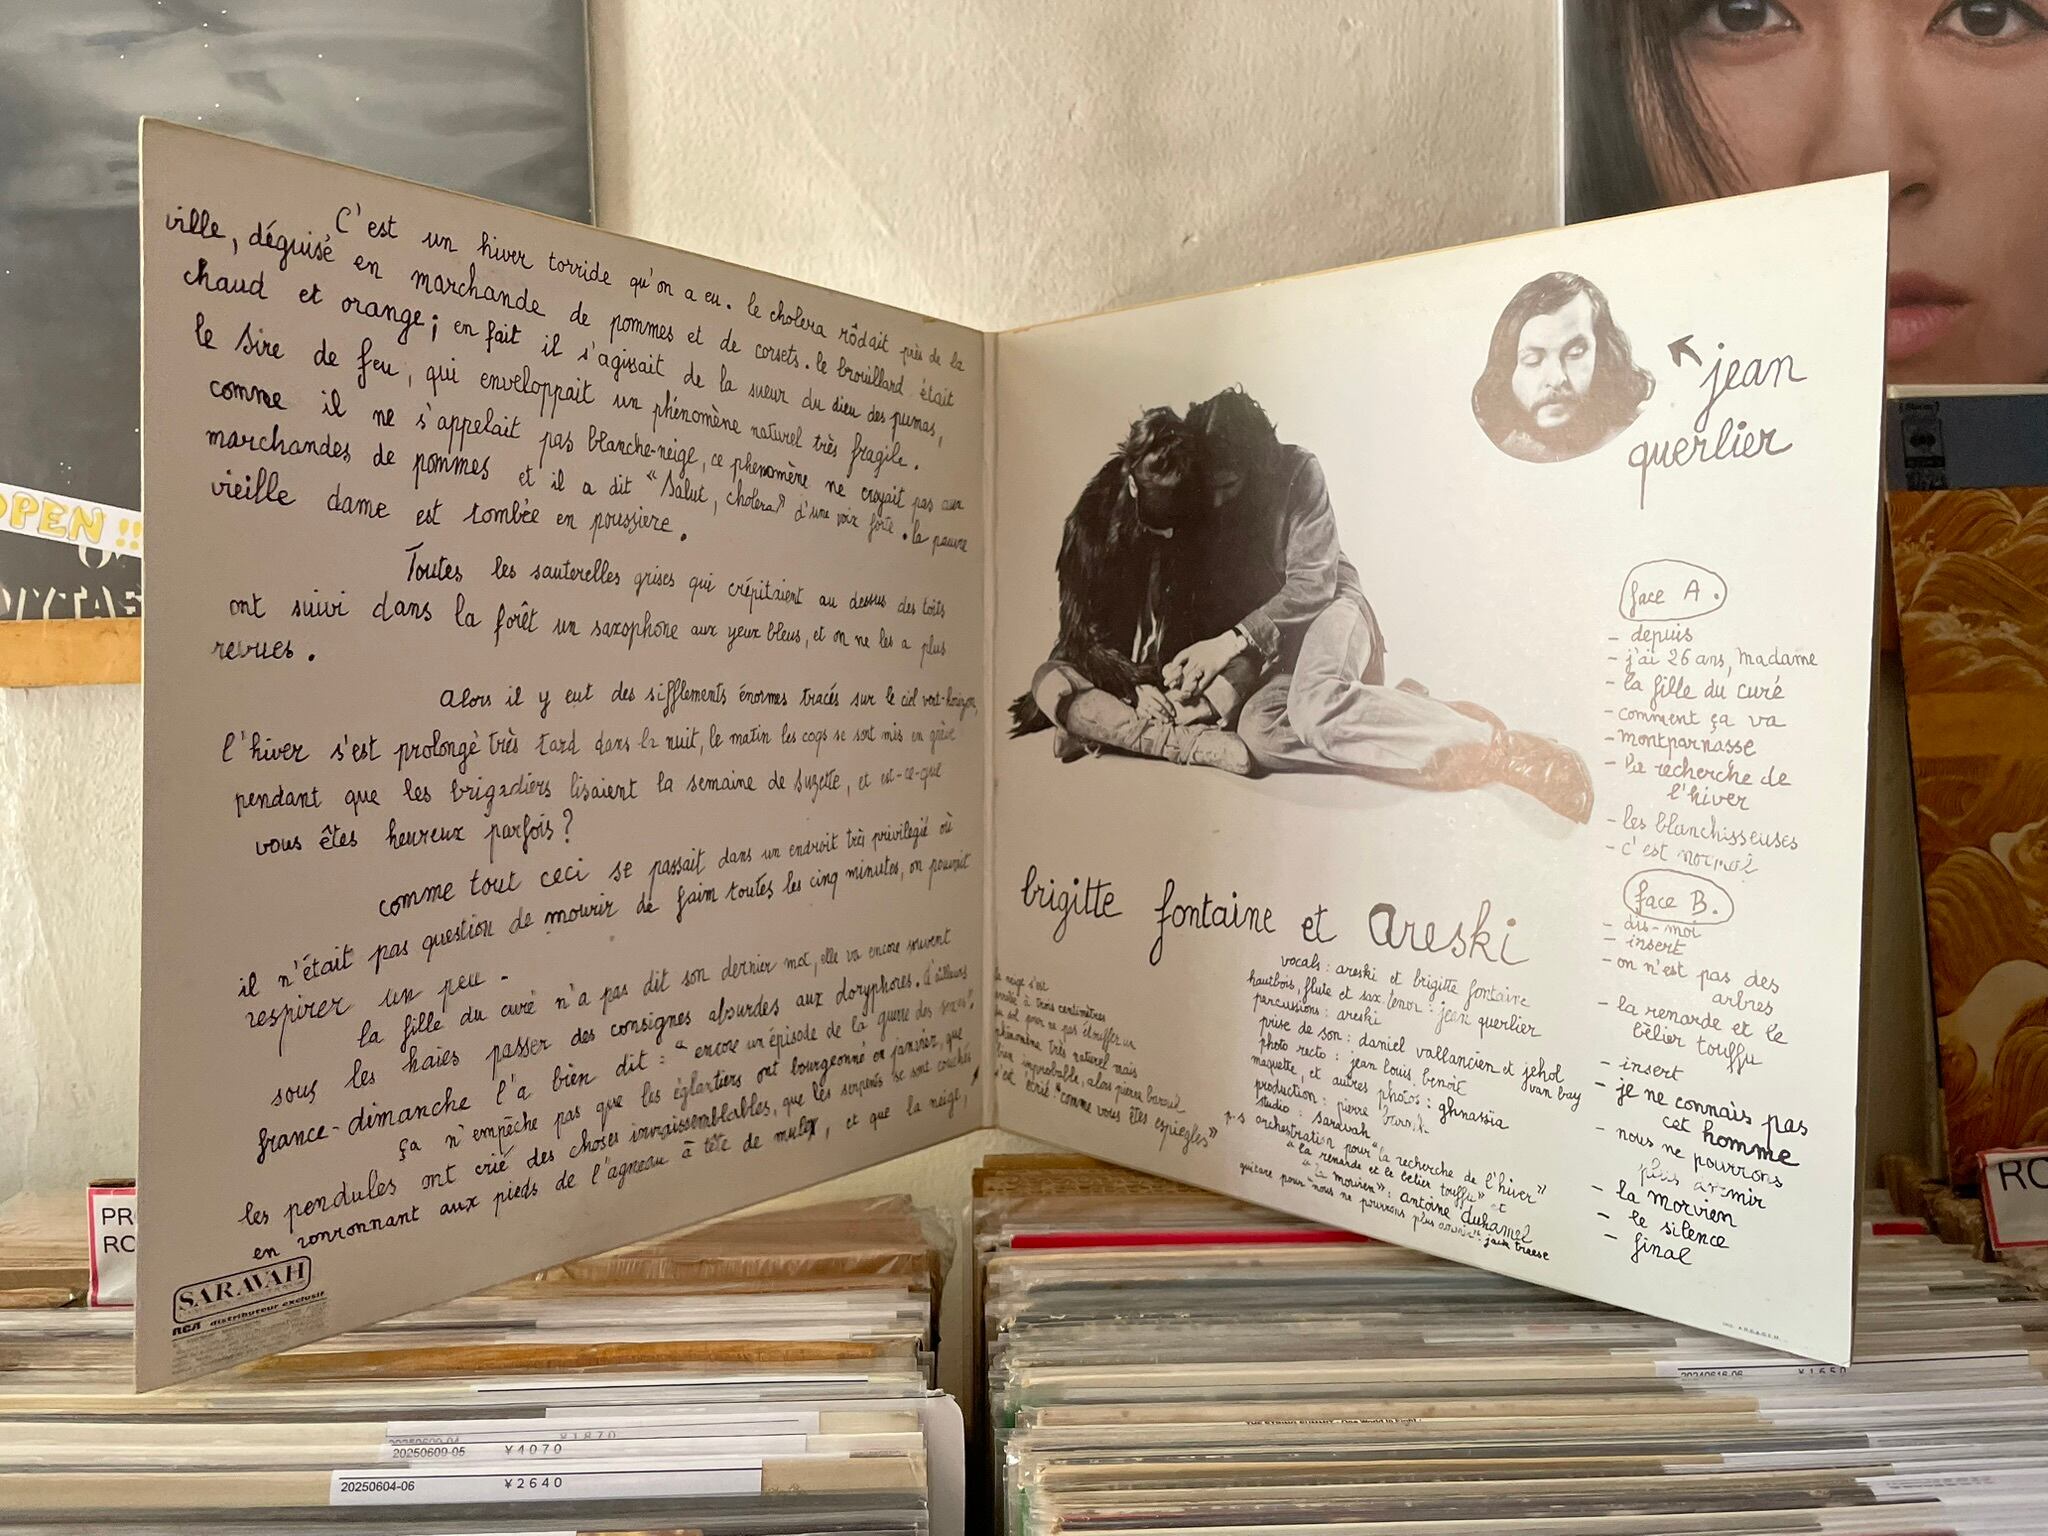 C'est un hiver torride qu'on a eu. le choléra rôdait près de la
ville, déguisé en marchande de pommes et de corsets. le brouillard était
chaud et orange; en fait il s'agissait de la sueur du dieu des pumas,
le sire de feu, qui enveloppait un phénomène naturel très fragile.
comme il ne s'appelait pas blanche-neige, ce phenomène ne croyait pas aux
marchandes de pommes et il a dit "salut, choléra" d'une voix forte. la pauvre
vieille dame est tombée en poussiere.
Toutes les sauterelles grises qui crépitaient au dessus des toits
ont suivi dans la forêt un saxophone aux yeux bleus, et on ne les a plus
revues.
Alors il y eut des sifflements énormes tracés sur le ciel vert-horizon,
l'hiver s'est prolongé très tard dans la nuit, le matin les coqs se sont mis en grève
pendant que les brigadiers lisaient la semaine de suzette, et est-ce-que
vous êtes heureux parfois?
comme tout ceci se passait dans un endroit très privilegié où
il n'était pas question de mourir de faim toutes les cinq minutes, on pouvait
respirer un peu.
la fille du curé n'a pas dit son dernier mot, elle va encore souvent
sous les haies passer des consignes absurdes aux doryphores. d'ailleurs
france-dimanche l'a bien dit: "encore un épisode de la guerre des sexes".
ça n'empêche pas que les églantiers ont bourgeonné en janvier, que
les pendules ont crié des choses invraissemblables, que les serpents se sont couchés
en ronronnant aux pieds de l'agneau à tête de mulet, et que la neige,
SARAVAH
RCA distributeur exclusif
jean
querlier
brigitte fontaine et Areski
la neige s'est
arrêtée à trois centimètres
du sol pour ne pas étouffer un
phénomène très naturel mais
bien improbable, alors pierre barouh
s'est écrié "comme vous êtes espiegles"
vocals: areski et brigitte fontaine
hautbois, flute et sax. tenor: jean querlier
percussions: areski
prise de son: daniel vallancien et jehol
van bay
photo recto: jean louis. benoit
maquette, et autres photos: ghnassia
production: pierre
studio: saravah
p.s orchestration pour "la recherche de l'hiver"
"la renarde et le bélier touffu" et
"la morvien": antoine duhamel
guitare pour "nous ne pourrons plus
face A.
- depuis
- j'ai 26 ans, Madame
- la fille du curé
- comment ça va
- montparnasse
- la recherche de
l'hiver
- les blanchisseuses
- c'est normal
face B.
- dis-moi
- insert
- on n'est pas des
arbres
- la renarde et le
bélier touffu
- insert
- je ne connais pas
cet homme
- nous ne pourrons
plus
- la morvien
- le silence
- final
OPEN!!
PR
RO
RO
20240616-06 ¥1650
20250609-04 ¥1870
20250609-05 ¥4070
20250604-06 ¥2640